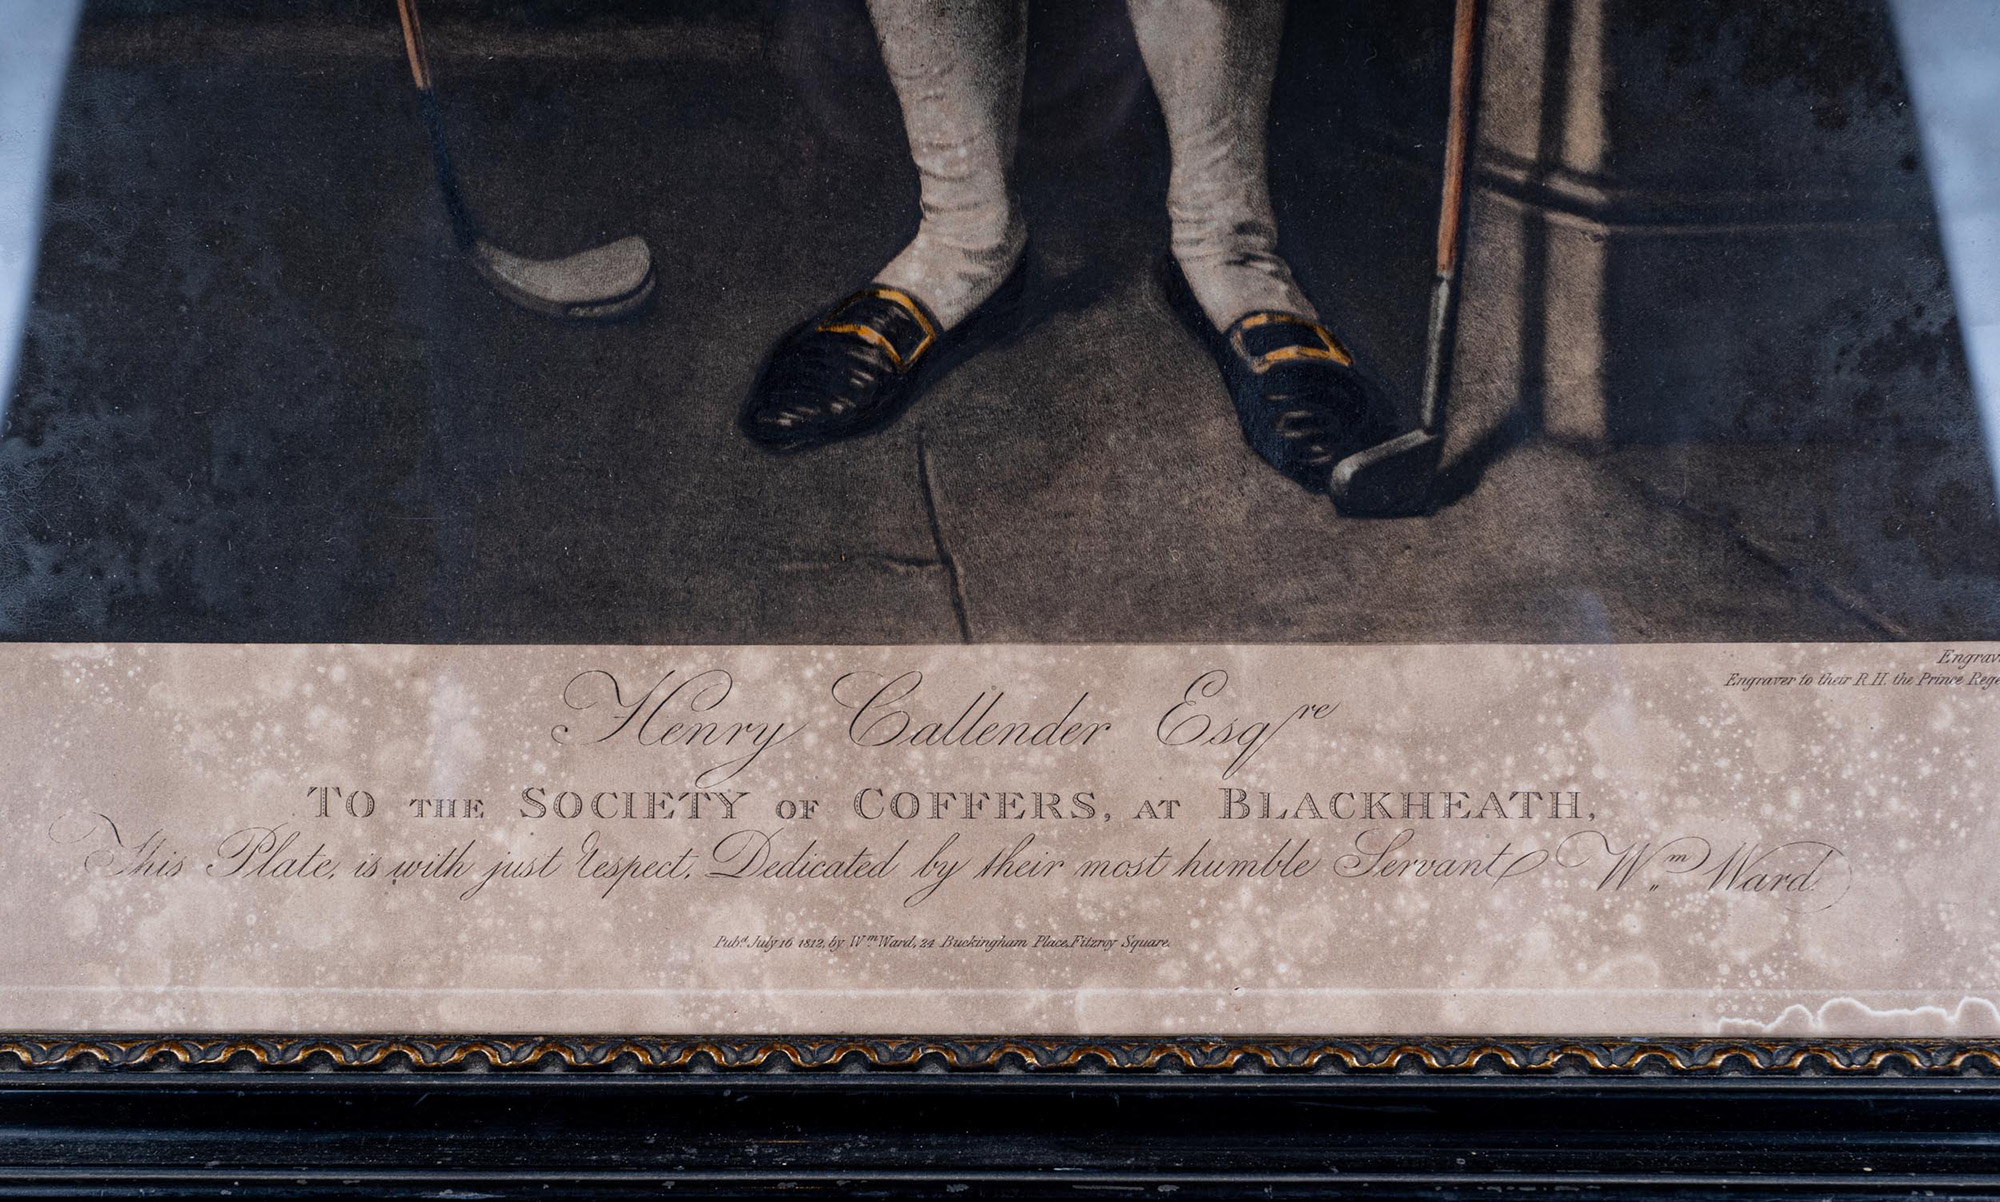 Engrav
Engraver to their R.H. the Prince Rege
Henry Callender Esqre
TO THE SOCIETY OF COFFERS, AT BLACKHEATH,
This Plate, is with just respect, Dedicated by their most humble Servant Wm Ward
Pubd July 16 1812, by Wm Ward, 24 Buckingham Place, Fitzroy Square.